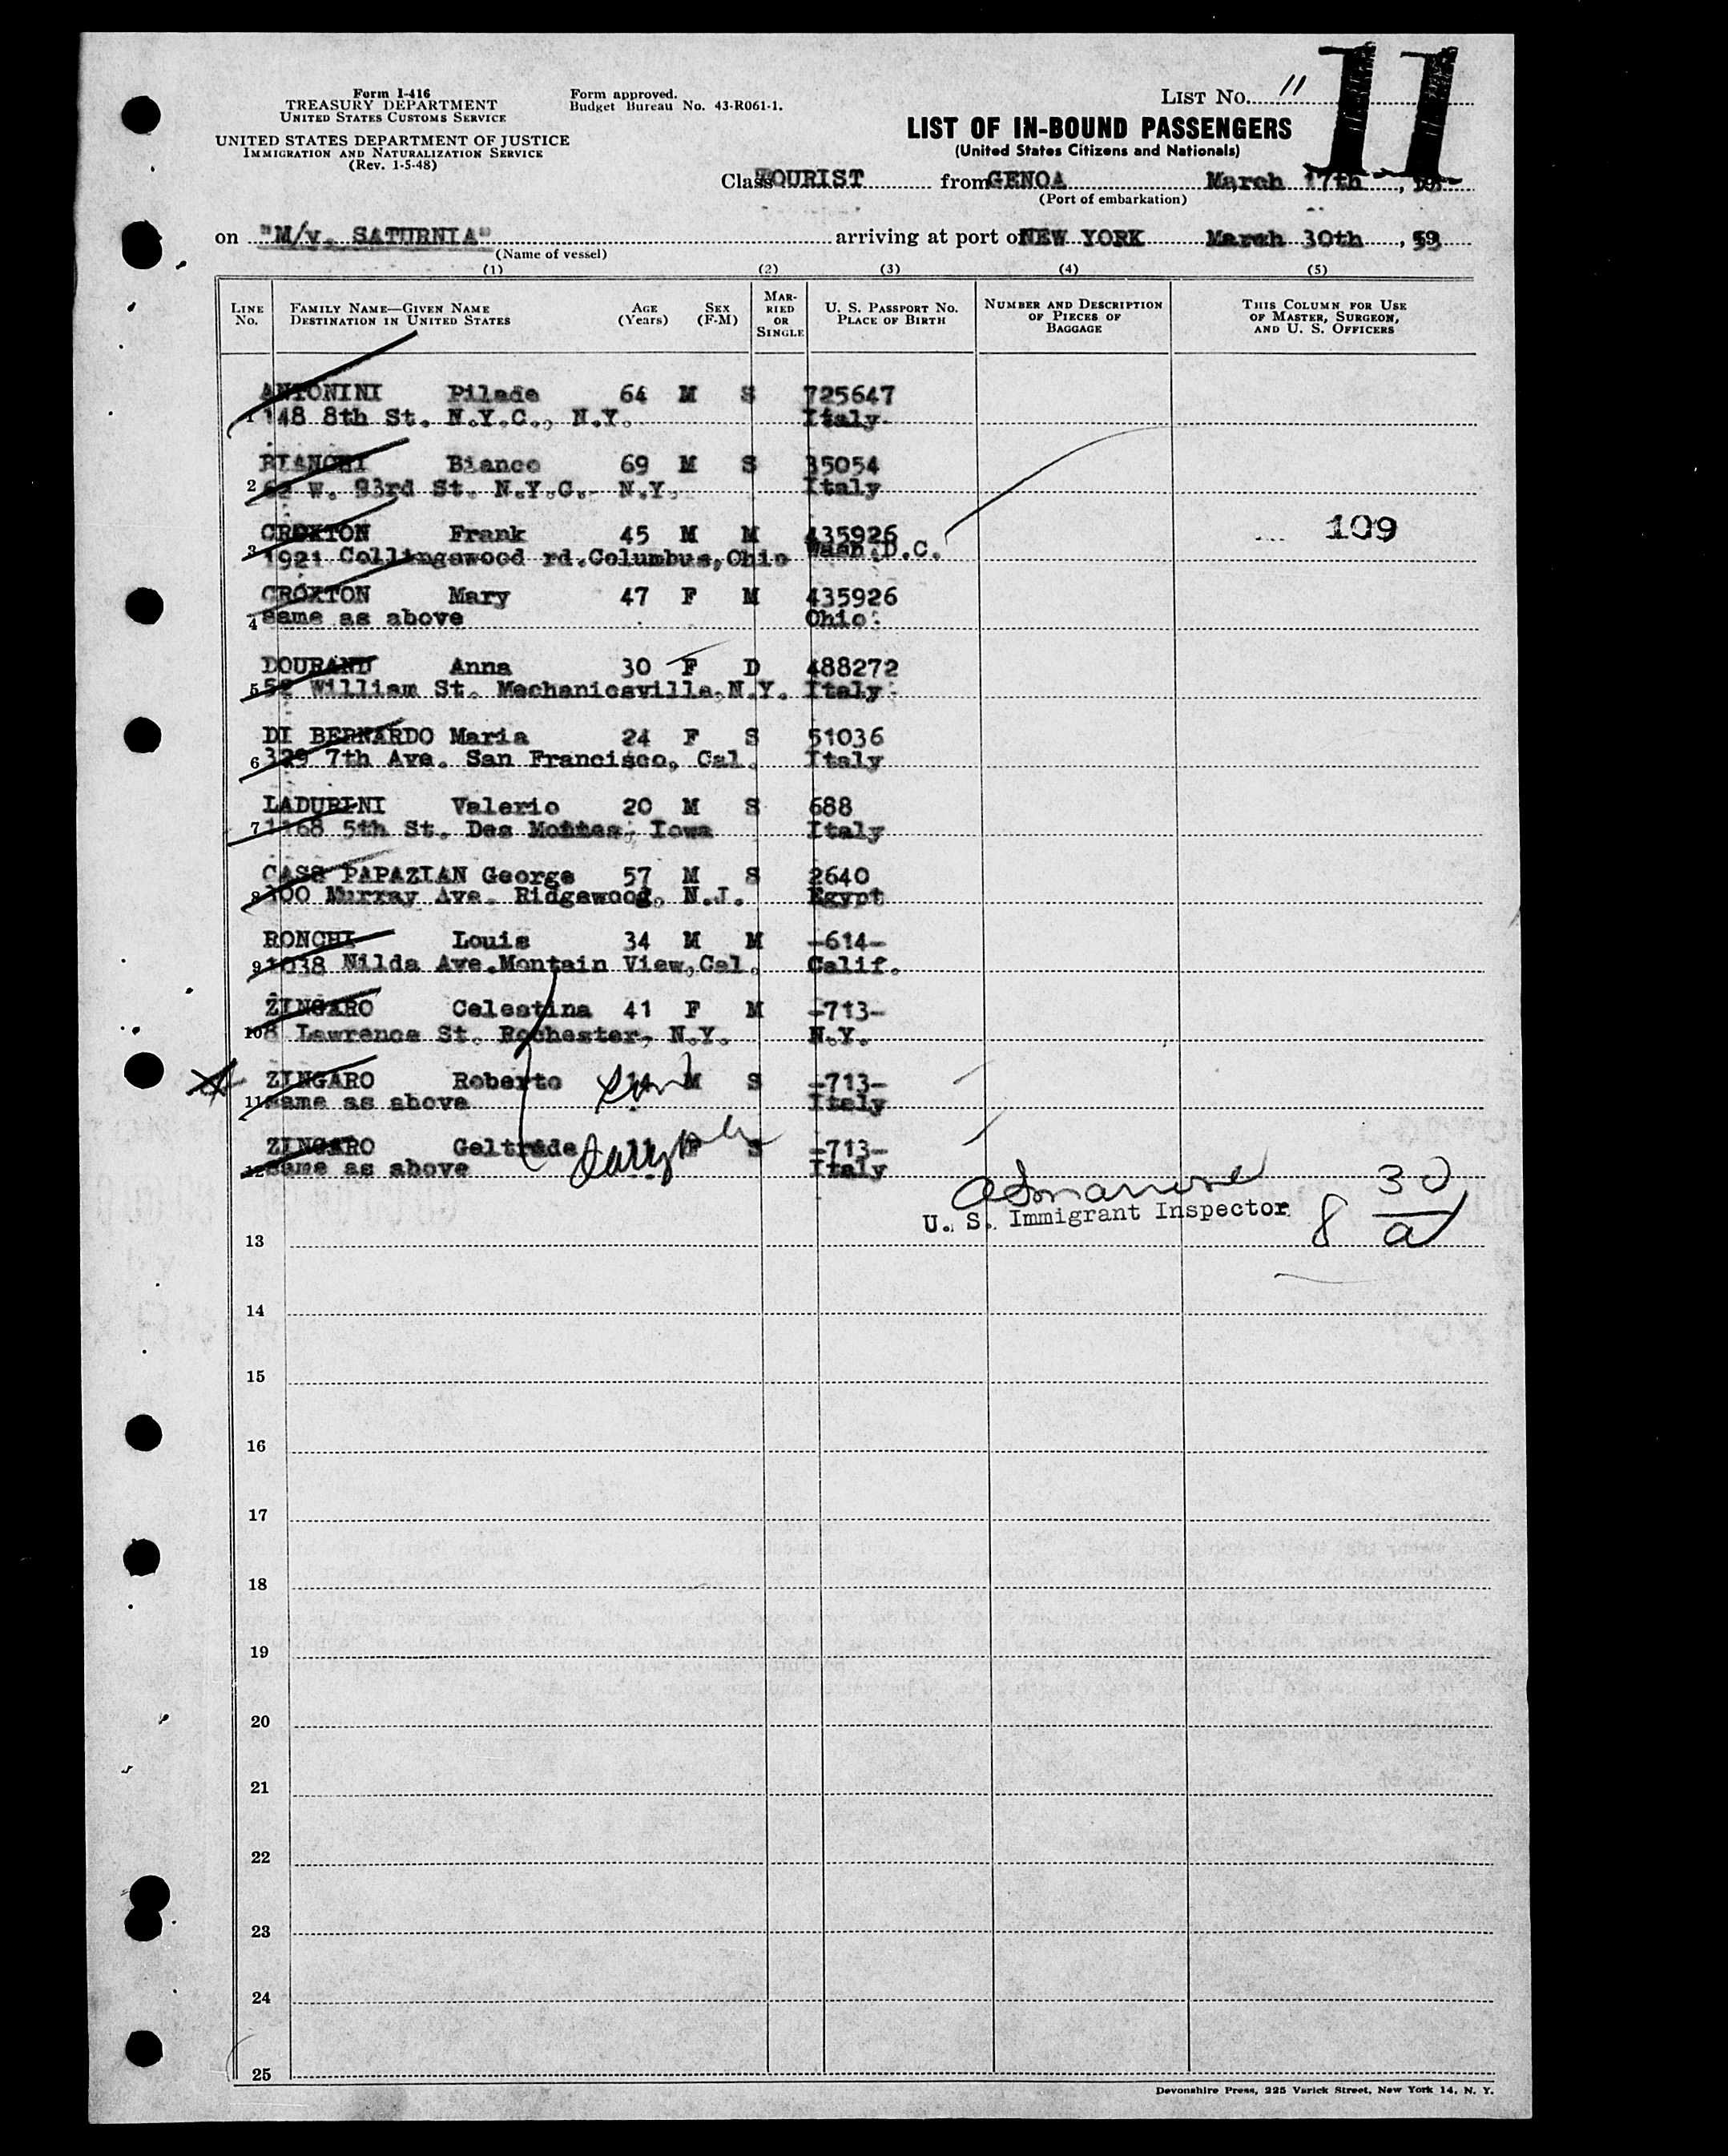 Form I-416
TREASURY DEPARTMENT
UNITED STATES CUSTOMS SERVICE
UNITED STATES DEPARTMENT OF JUSTICE
IMMIGRATION AND NATURALIZATION SERVICE
(Rev. 1-5-48)
Form approved.
Budget Bureau No. 43-R061-1.
LIST NO. 11
11
LIST OF IN-BOUND PASSENGERS
(United States Citizens and Nationals)
Class TOURIST from GENOA March 17th, 19
(Port of embarkation)
on "M/v. SATURNIA" arriving at port of NEW YORK March 30th, 53
(Name of vessel)
(1) (2) (3) (4) (5)
LINE NO. FAMILY NAME—GIVEN NAME DESTINATION IN UNITED STATES AGE (Years) SEX (F-M) MARRIED OR SINGLE U. S. PASSPORT NO. PLACE OF BIRTH NUMBER AND DESCRIPTION OF PIECES OF BAGGAGE THIS COLUMN FOR USE OF MASTER, SURGEON, AND U. S. OFFICERS
ANTONINI Pilade 64 M S 725647
1 148 8th St. N.Y.C., N.Y. Italy
BIANCHI Bianco 69 M S 35054
2 W. 93rd St. N.Y.C.- N.Y. Italy
CROXTON Frank 45 M M 435926 109
3 1921 Collingswood rd.Columbus,Ohio Wash.D.C.
CROXTON Mary 47 F M 435926
4 same as above Ohio
DOURAND Anna 30 F D 488272
5 52 William St. Mechanicsville.N.Y. Italy
DI BERNARDO Maria 24 F S 51036
6 329 7th Ave. San Francisco, Cal. Italy
LADURINI Valerio 20 M S 688
7 1168 5th St. Des Moines, Iowa Italy
CASS PAPAZIAN George 57 M S 2640
8 100 Murray Ave. Ridgewood, N.J. Egypt
RONCHI Louis 34 M M -614-
9 1038 Nilda Ave.Montain View,Cal. Calif.
ZINGARO Celestina 41 F M -713-
10 8 Lawrence St. Rochester, N.Y. N.Y.
ZINGARO Roberto 14 son M S -713-
11 same as above Italy
ZINGARO Geltrude 11 F S -713-
12 same as above Italy
U. S. Immigrant Inspector 8 30/a
13
14
15
16
17
18
19
20
21
22
23
24
25
Devonshire Press, 225 Varick Street, New York 14, N. Y.